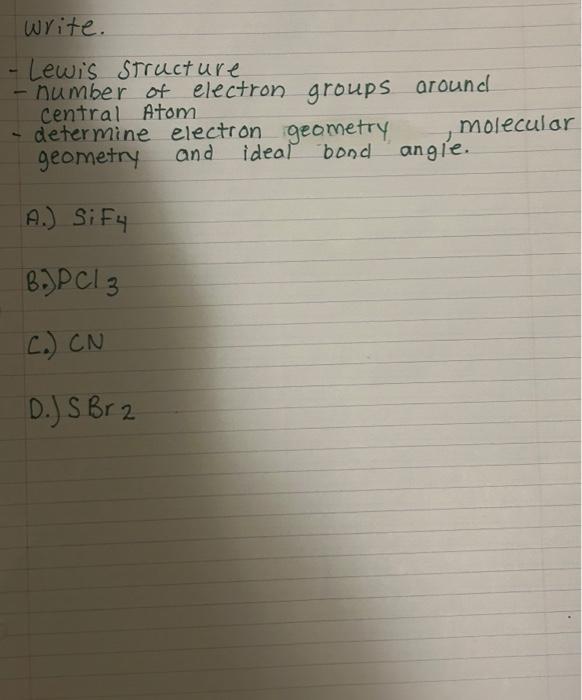 write.
- Lewis structure
- number of electron groups around
central Atom
- determine electron geometry , molecular
geometry and ideal bond angle.
A.) SiF4
B.) PCl3
C.) CN
D.) SBr2